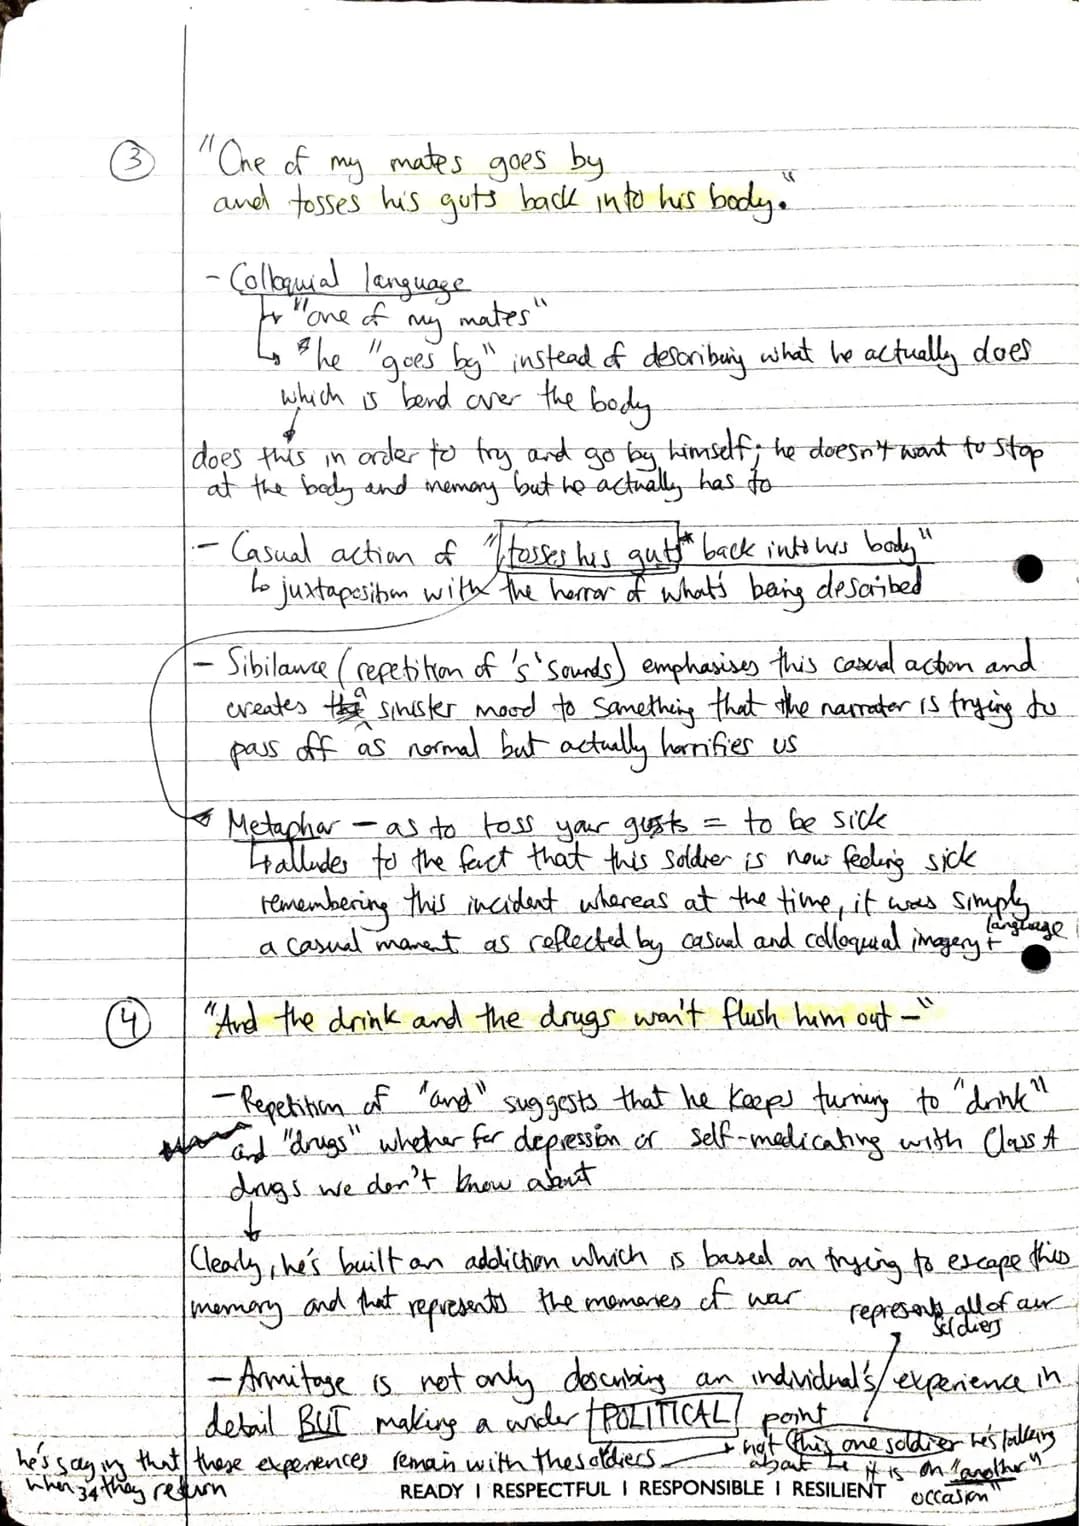 3
"One of my mates goes by
and tosses his guts back into his body."
- Colloquial language
↳ "one of my mates"
↳ he "goes by" instead of describing what he actually does
which is bend over the body
does this in order to try and go by himself; he doesn't want to stop
at the body and memory but he actually has to
- Casual action of "tosses his guts* back into his body"
↳ juxtaposition with the horror of what's being described
- Sibilance (repetition of 's' sounds) emphasises this casual action and
creates a sinister mood to something that the narrator is trying to
pass off as normal but actually horrifies us
Metaphor - as to toss your guts = to be sick
↳ alludes to the fact that this soldier is now feeling sick
remembering this incident whereas at the time, it was simply
a casual moment as reflected by casual and colloquial imagery + language
4
"And the drink and the drugs won't flush him out -"
- Repetition of "and" suggests that he keeps turning to "drink"
and "drugs" whether for depression or self-medicating with Class A
drugs we don't know about
Clearly, he's built an addiction which is based on trying to escape this
memory and that represents the memories of war
represents all of our
soldiers
- Armitage is not only describing an individual's experience in
detail BUT making a wider POLITICAL point
not this one soldier he's talking
about it is on "another"
occasion"
he's saying that these experiences remain with the soldiers
when they return
34
READY I RESPECTFUL I RESPONSIBLE I RESILIENT